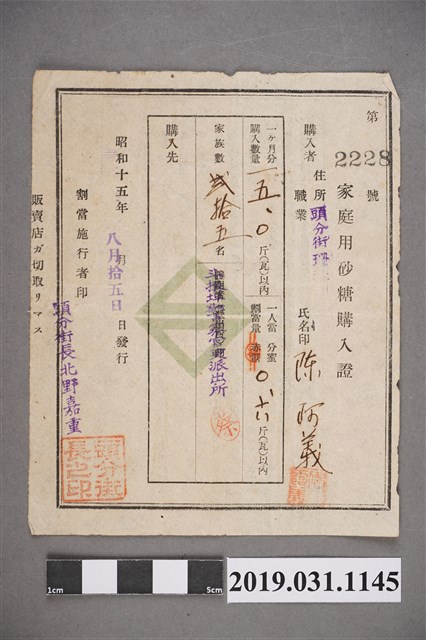 第2228號
家庭用砂糖購入證
購入者
住所 頭分街
職業
氏名印 陳阿義
一ヶ月分購入數量 一五、〇斤(瓦)以內
一人當分蜜割當量 〇、六斤(瓦)以內
家族數 貳拾五名
派出所
購入先
昭和十五年八月拾五日發行
割當施行者印
頭分街長北野嘉重
頭分街長之印
販賣店ガ切取リマス
1cm
5cm
2019.031.1145